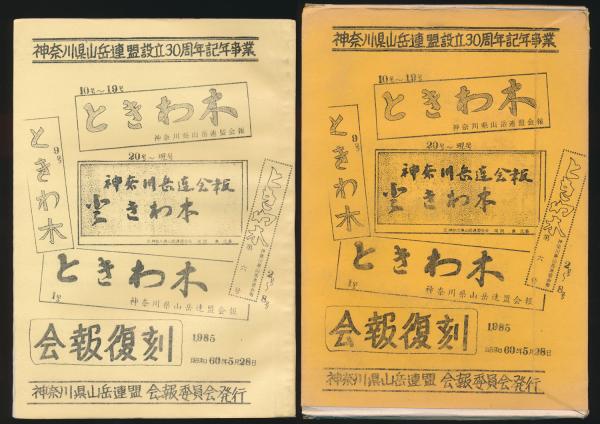 神奈川県山岳連盟設立30周年記年事業
10号~19号
ときわ木
神奈川県山岳連盟会報
9号
ときわ木
20号~現号
神奈川岳連会報
ときわ木
ときわ木
第六号
2号~8号
ときわ木
1号
神奈川県山岳連盟会報
会報復刻
1985
昭和60年5月28日
神奈川県山岳連盟 会報委員会発行
神奈川県山岳連盟設立30周年記年事業
10号~19号
ときわ木
神奈川県山岳連盟会報
9号
ときわ木
20号~現号
神奈川岳連会報
ときわ木
ときわ木
第六号
2号~8号
ときわ木
1号
神奈川県山岳連盟会報
会報復刻
1985
昭和60年5月28日
神奈川県山岳連盟 会報委員会発行